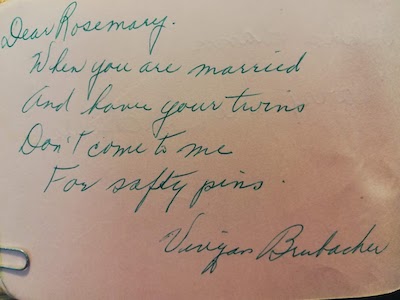 Dear Rosemary.
When you are married
And have your twins
Don't come to me
For safty pins.
Vivian Brubacher